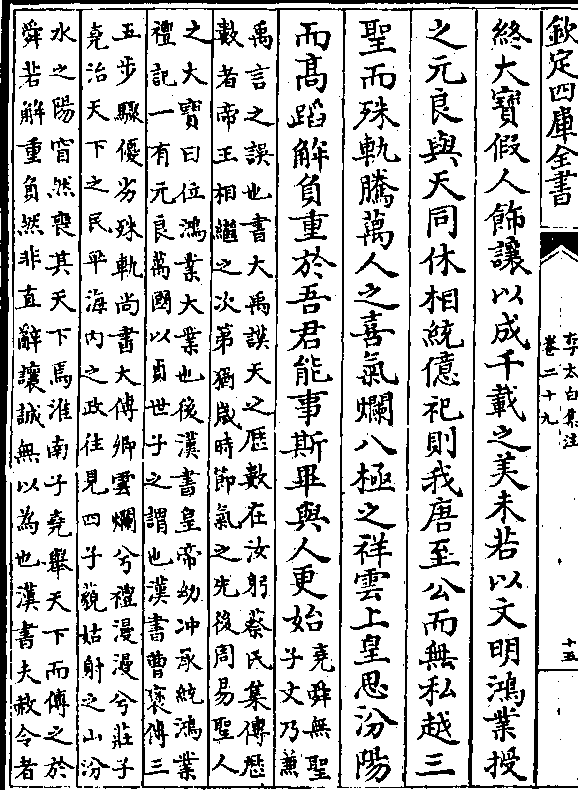 欽定四庫全書
李太白集注
卷二十九
十五
終大寶假人飾讓以成千載之美未若以文明鴻業授
之元良與天同休相統億祀則我唐至公而無私越三
聖而殊軌騰萬人之喜氣爛八極之祥雲上皇思汾陽
而髙蹈解負重於吾君能事斯畢與人更始
堯舜無聖
子文乃兼
禹言之誤也書大禹謨天之厯數在汝躬蔡氏集傳厯
數者帝王相繼之次第猶嵗時節氣之先後周易聖人
之大寶曰位鴻業大業也後漢書皇帝幼冲承統鴻業
禮記一有元良萬國以貞世子之謂也漢書曹褒傳三
五步驟優劣殊軌尚書大傳卿雲爛兮禮漫漫兮莊子
堯治天下之民平海内之政往見四子藐姑射之山汾
水之陽窅然喪其天下焉淮南子堯舉天下而傳之於
舜若解重負然非直辭讓誠無以為也漢書夫赦令者